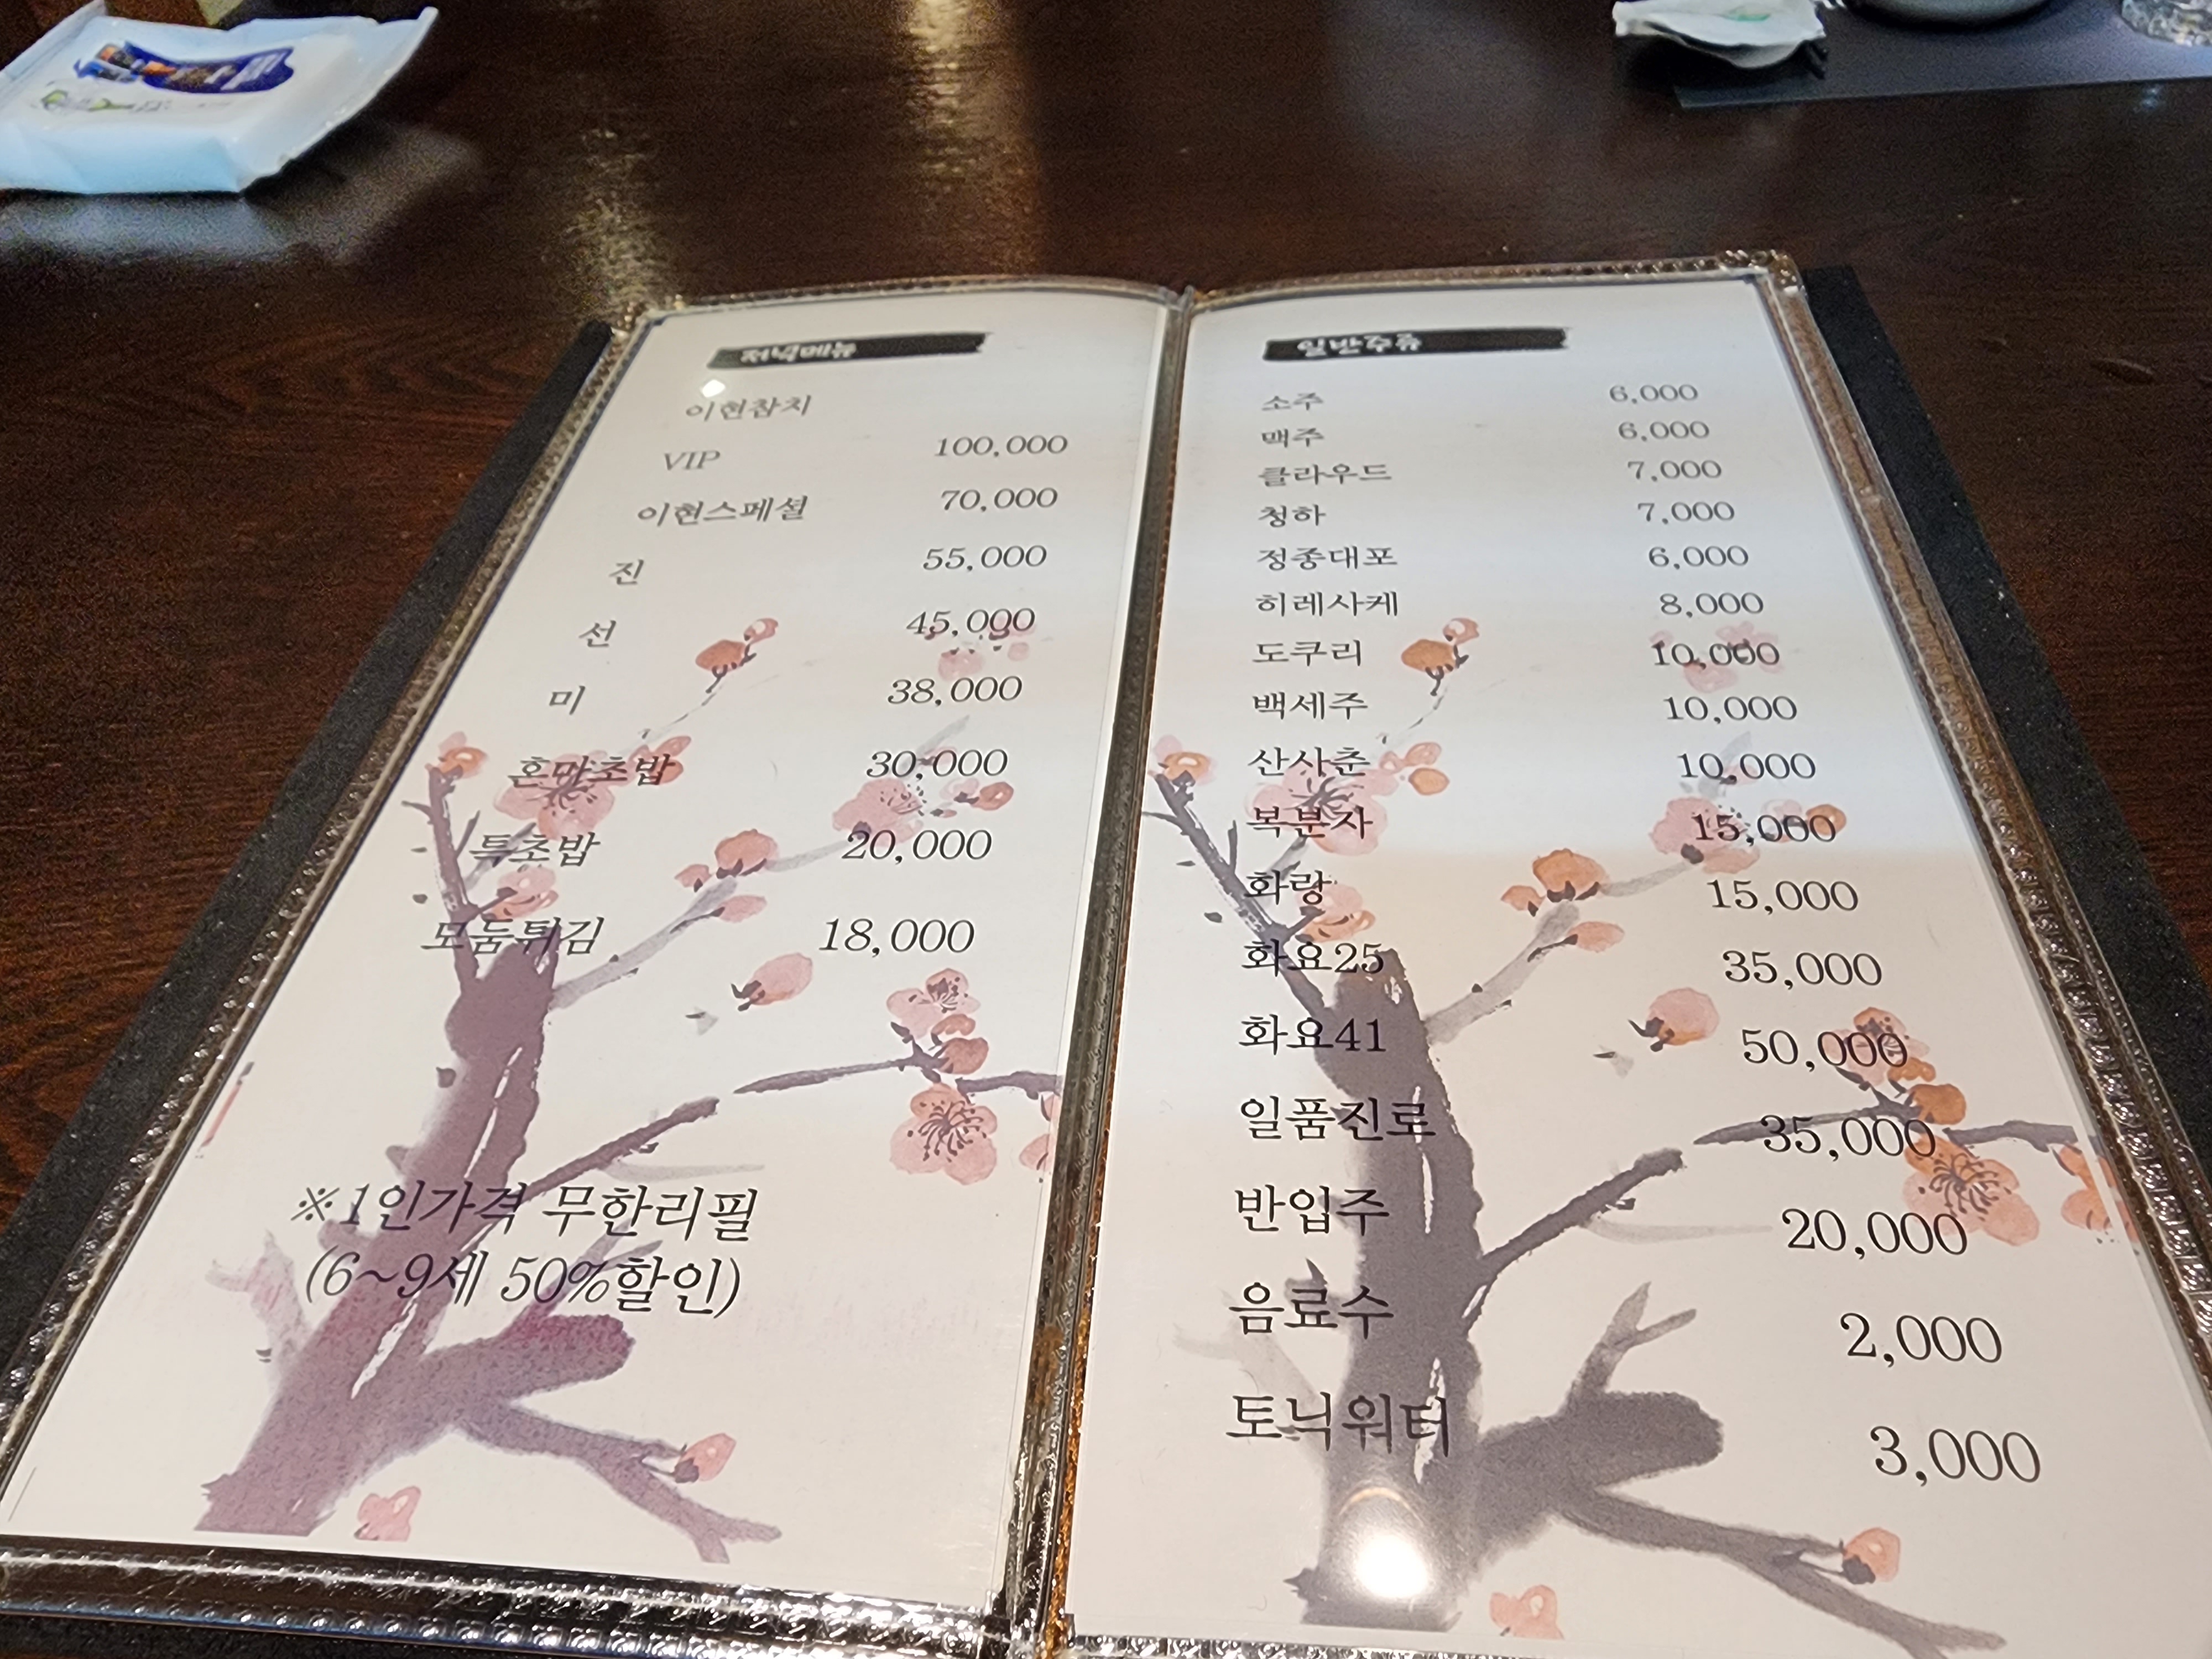 저녁메뉴
이현참치
VIP 100,000
이현스페셜 70,000
진 55,000
선 45,000
미 38,000
혼마초밥 30,000
특초밥 20,000
모둠튀김 18,000
※1인가격 무한리필
(6~9세 50%할인)
일반주류
소주 6,000
맥주 6,000
클라우드 7,000
청하 7,000
정종대포 6,000
히레사케 8,000
도쿠리 10,000
백세주 10,000
산사춘 10,000
복분자 15,000
화랑 15,000
화요25 35,000
화요41 50,000
일품진로 35,000
반입주 20,000
음료수 2,000
토닉워터 3,000